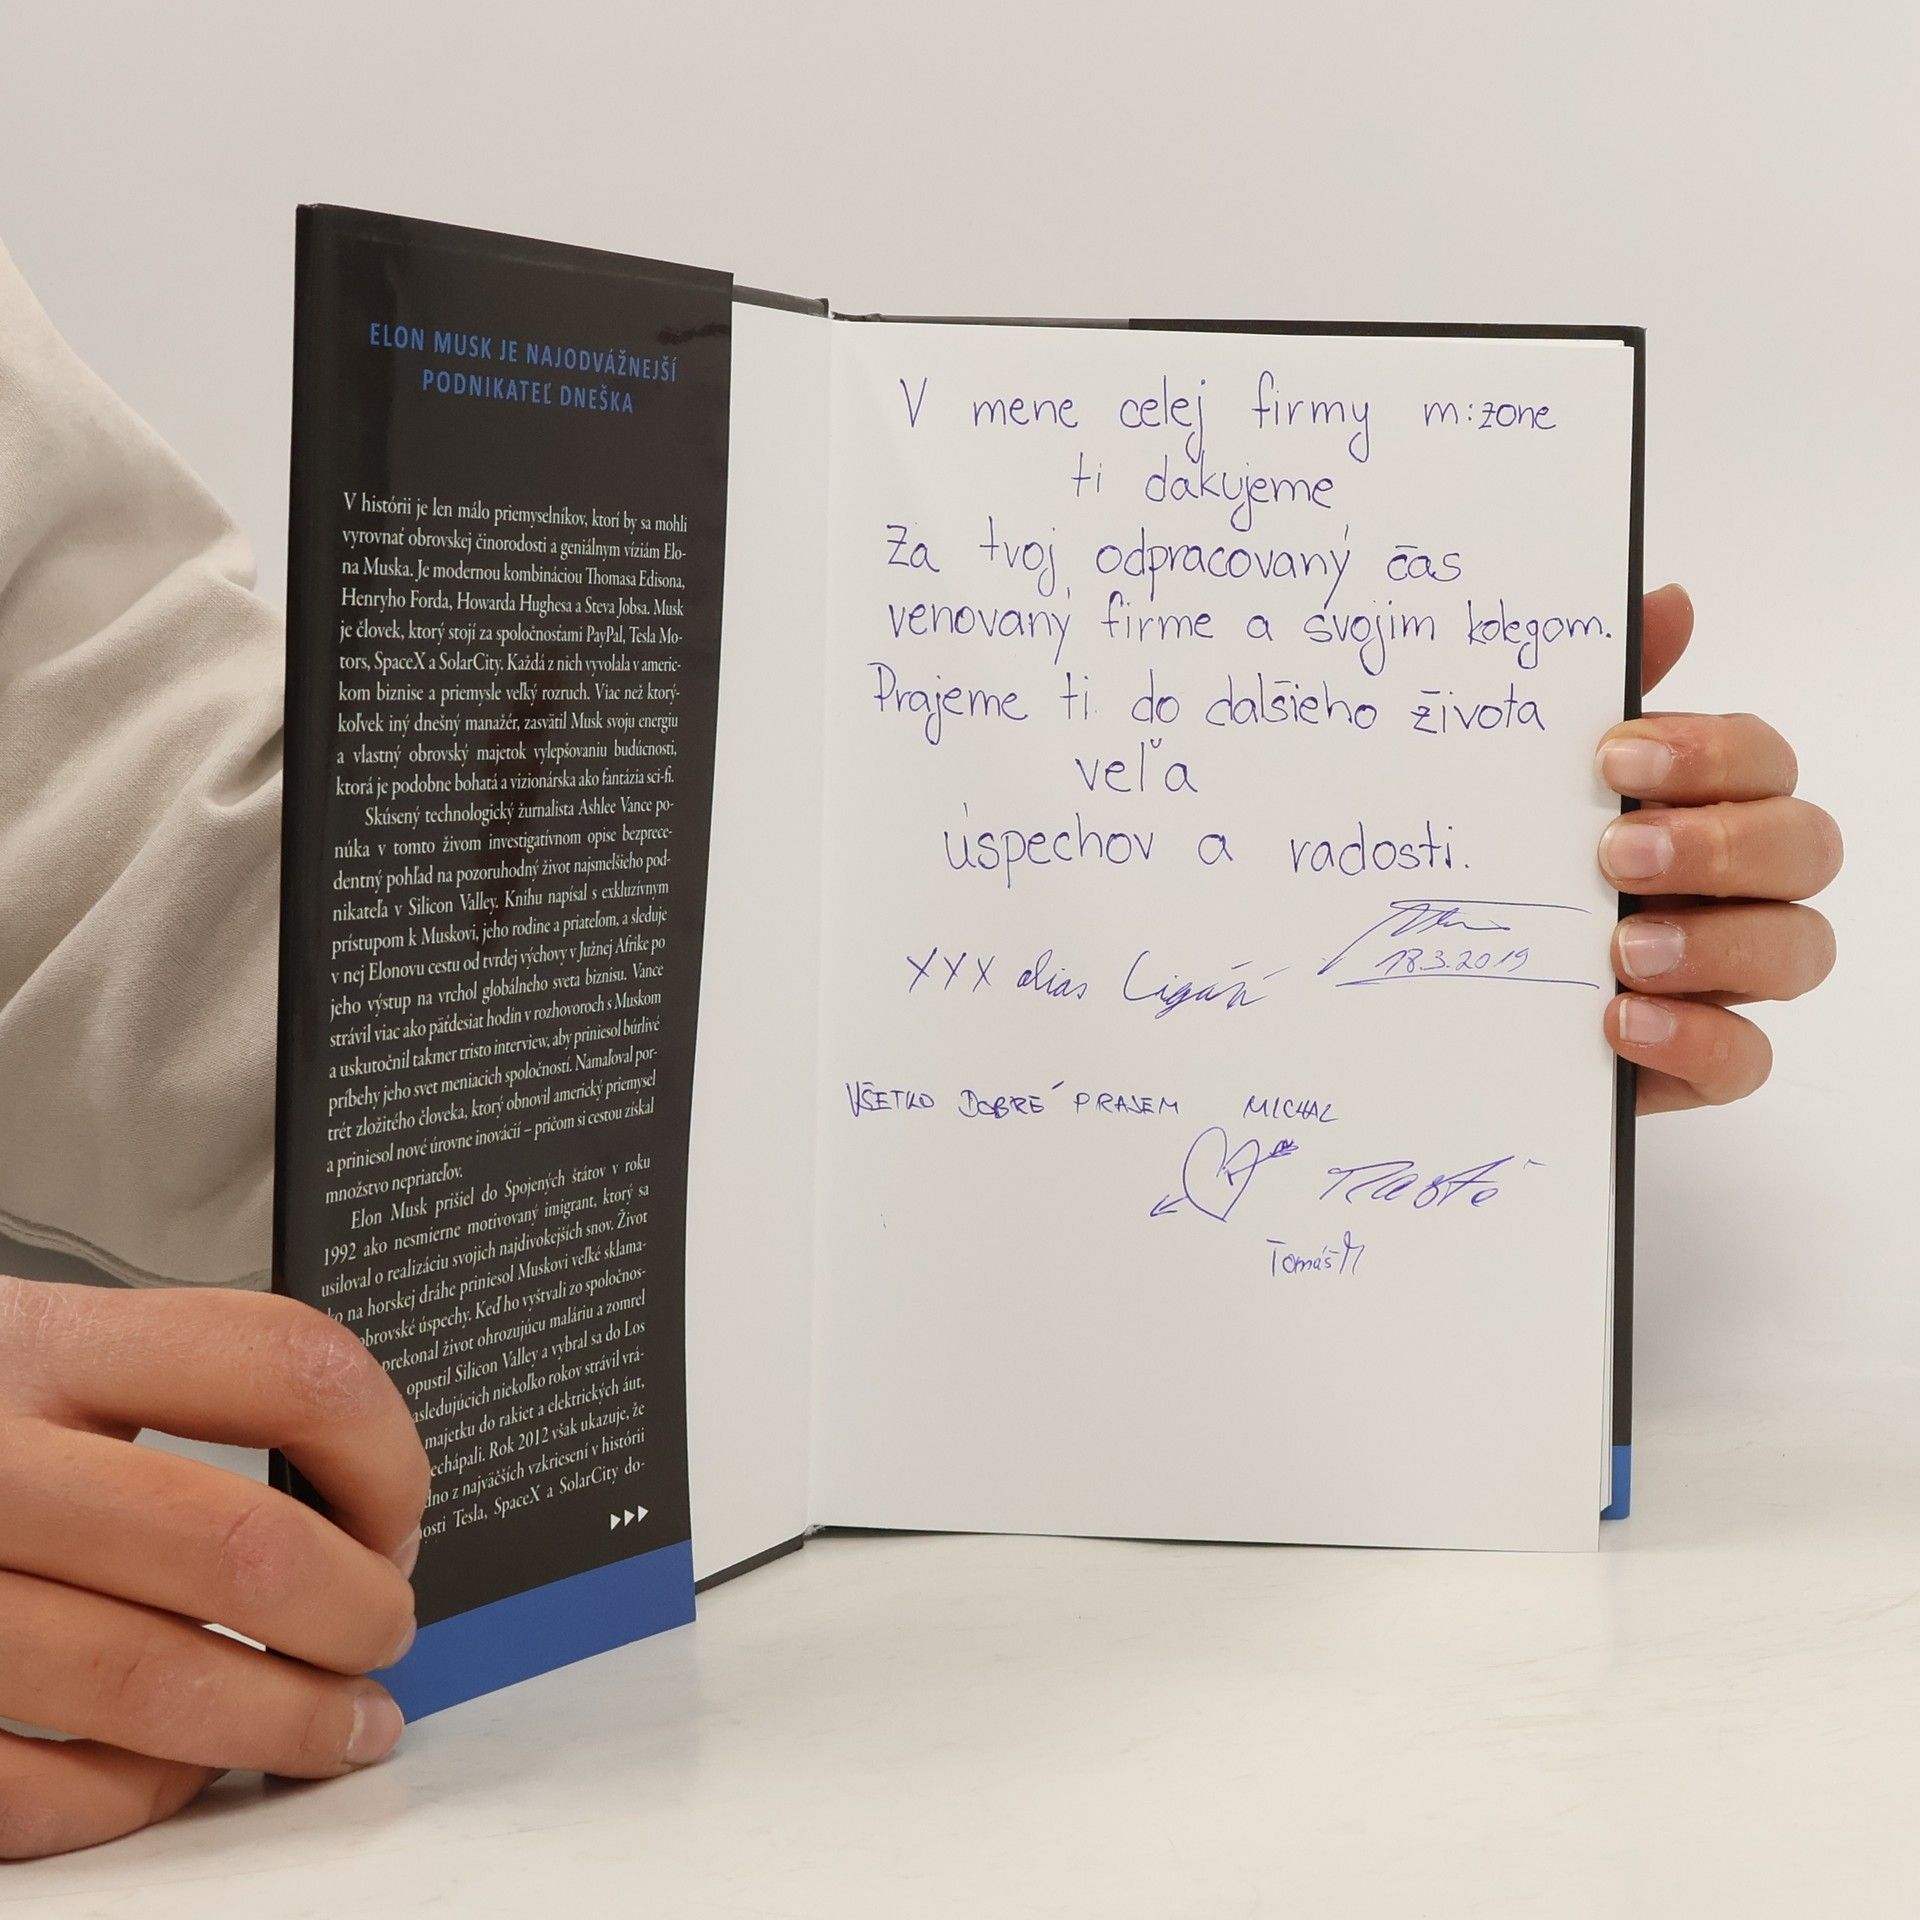 ELON MUSK JE NAJODVÁŽNEJŠÍ
PODNIKATEĽ DNEŠKA
V histórii je len málo priemyselníkov, ktorí by sa mohli
vyrovnať obrovskej činorodosti a geniálnym víziám Elo-
na Muska. Je modernou kombináciou Thomasa Edisona,
Henryho Forda, Howarda Hughesa a Steva Jobsa. Musk
je človek, ktorý stojí za spoločnosťami PayPal, Tesla Mo-
tors, SpaceX a SolarCity. Každá z nich vyvolala v americ-
kom biznise a priemysle veľký rozruch. Viac než ktorý-
koľvek iný dnešný manažér, zasvätil Musk svoju energiu
a vlastný obrovský majetok vylepšovaniu budúcnosti,
ktorá je podobne bohatá a vizionárska ako fantázia sci-fi.
Skúsený technologický žurnalista Ashlee Vance po-
núka v tomto živom investigatívnom opise bezprece-
dentný pohľad na pozoruhodný život najsmelšieho pod-
nikateľa v Silicon Valley. Knihu napísal s exkluzívnym
prístupom k Muskovi, jeho rodine a priateľom, a sleduje
v nej Elonovu cestu od tvrdej výchovy v Južnej Afrike po
jeho výstup na vrchol globálneho sveta biznisu. Vance
strávil viac ako päťdesiat hodín v rozhovoroch s Muskom
a uskutočnil takmer tristo interview, aby priniesol búrlivé
príbehy jeho svet meniacich spoločností. Namaľoval por-
trét zložitého človeka, ktorý obnovil americký priemysel
a priniesol nové úrovne inovácií – pričom si cestou získal
množstvo nepriateľov.
Elon Musk prišiel do Spojených štátov v roku
1992 ako nesmierne motivovaný imigrant, ktorý sa
usiloval o realizáciu svojich najdivokejších snov. Život
ko na horskej dráhe priniesol Muskovi veľké sklama-
obrovské úspechy. Keď ho vyštvali zo spoločnos-
prekonal život ohrozujúcu maláriu a zomrel
opustil Silicon Valley a vybral sa do Los
asledujúcich niekoľko rokov strávil vrá-
majetku do rakiet a elektrických áut,
echápali. Rok 2012 však ukazuje, že
dno z najväčších vzkriesení v histórii
nosti Tesla, SpaceX a SolarCity do-
V mene celej firmy m:zone
ti dakujeme
Za tvoj odpracovaný čas
venovaný firme a svojim kolegom.
Prajeme ti do dalšieho života
veľa
úspechov a radosti.
18.3.2019
XXX alias Cigáň
VŠETKO DOBRÉ PRAJEM MICHAL
Tomáš M